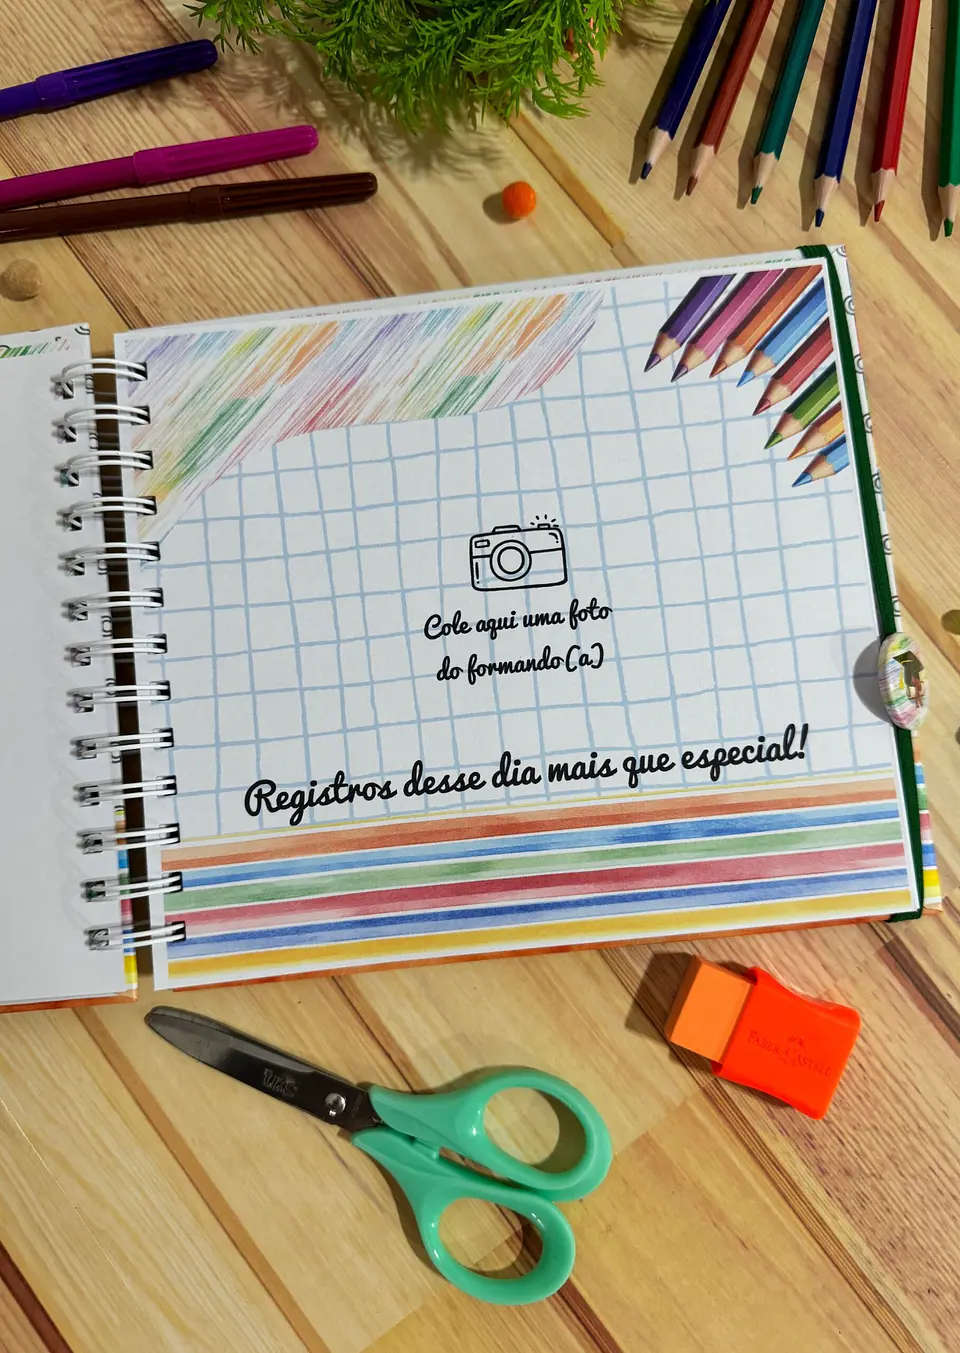 Cole aqui uma foto
do formando(a)
Registros desse dia mais que especial!
FABER-CASTELL